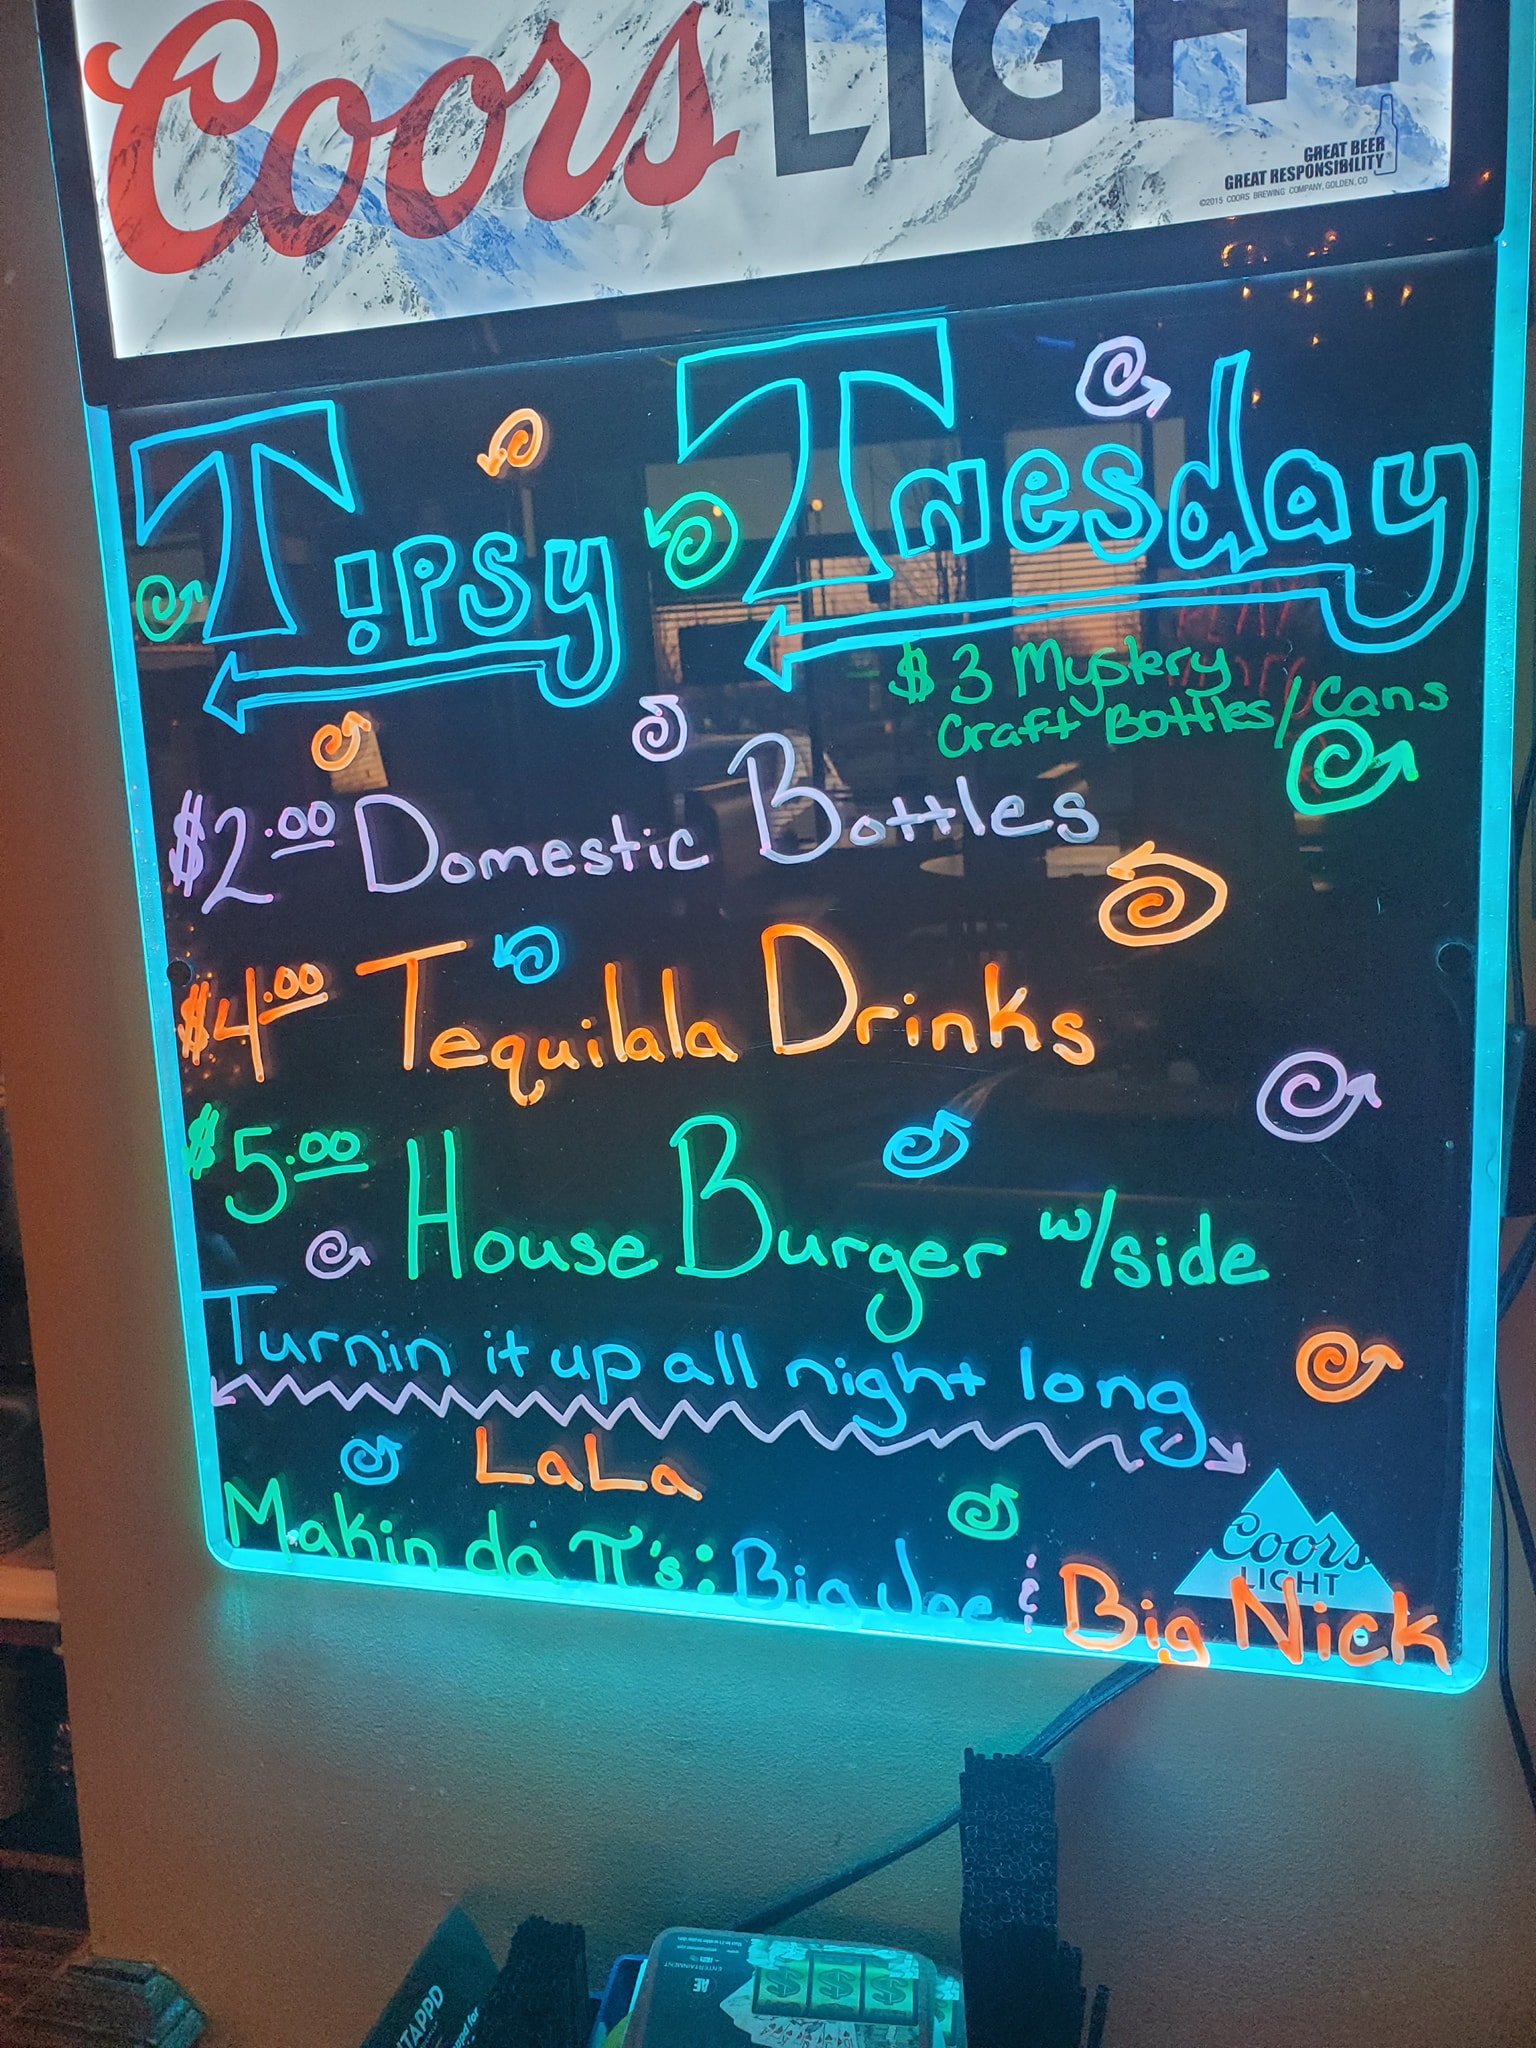 Coors LIGHT
GREAT BEER
GREAT RESPONSIBILITY
©2015 COORS BREWING COMPANY, GOLDEN, CO
Tipsy Tuesday
$3 Mystery
Craft Bottles/Cans
$2.00 Domestic Bottles
$4.00 Tequilala Drinks
$5.00 House Burger w/side
Turnin it up all night long
LaLa
Makin da π's: Big Joe & Big Nick
Coors
LIGHT
AE
ENTERTAINMENT